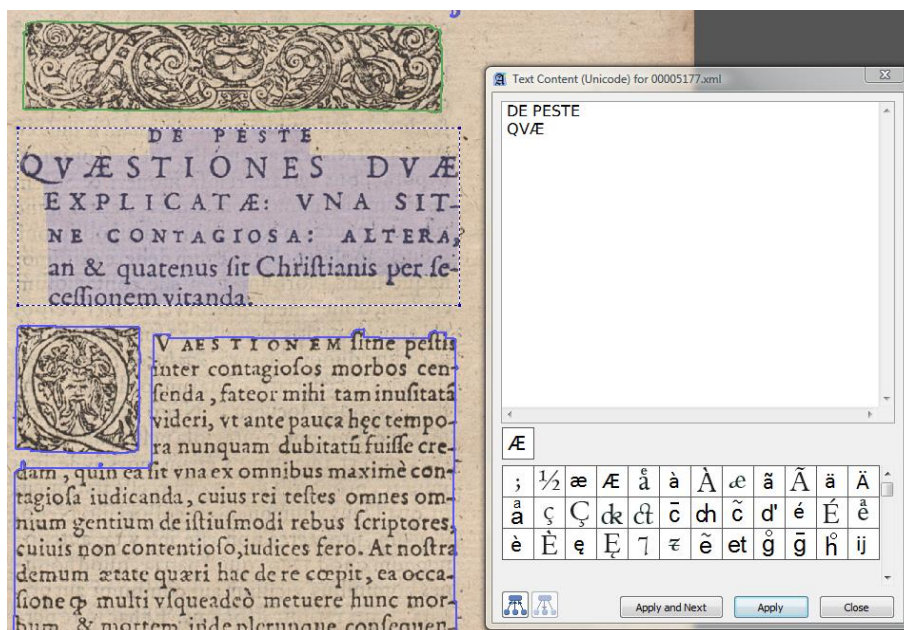 DE PESTE
QVÆSTIONES DVÆ
EXPLICATÆ: VNA SIT-
NE CONTAGIOSA: ALTERA,
an & quatenus ſit Chriſtianis per ſe-
ceſſionem vitanda.
VAESTIONEM ſitne peſtis
inter contagioſos morbos cen-
ſenda, fateor mihi tam inuſitatã
videri, vt ante pauca hęc tempo-
ra nunquam dubitatũ fuiſſe cre-
dam, quin ea ſit vna ex omnibus maximè con-
tagioſa iudicanda, cuius rei teſtes omnes om-
nium gentium de iſtiuſmodi rebus ſcriptores,
cuiuis non contentioſo, iudices fero. At noſtra
demum ætate quæri hac de re cœpit, ea occa-
ſione ꝙ multi vſqueadeò metuere hunc mor-
bum, & mortem inde plerunque conſequen-
Text Content (Unicode) for 00005177.xml
DE PESTE
QVÆ
Æ
; ½ æ Æ å à À æ ã Ã ä Ä
ç Ç ꝺk ct c̄ ch c̃ d' é É
è È ę Ę ⁊ ẽ et g̊ ḡ h̊ ij
Apply and Next
Apply
Close